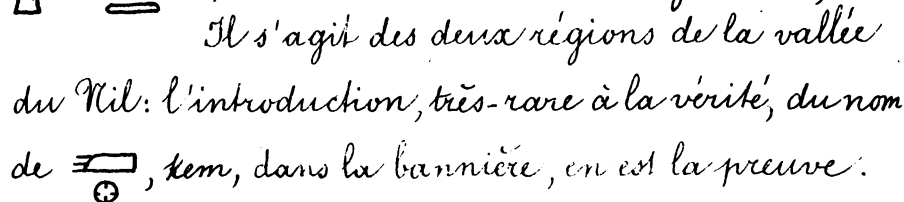 Il s'agit des deux régions de la vallée
du Nil: l'introduction, très-rare à la vérité, du nom
de 𓆎𓊖, kem, dans la bannière, en est la preuve.